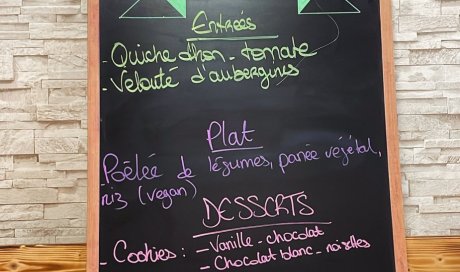 Entrées
- Quiche thon - tomate
- Velouté d'aubergines
Plat
- Poêlée de légumes, panée végétal,
riz (vegan)
DESSERTS
- Cookies : - Vanille - chocolat
- Chocolat blanc - noisettes